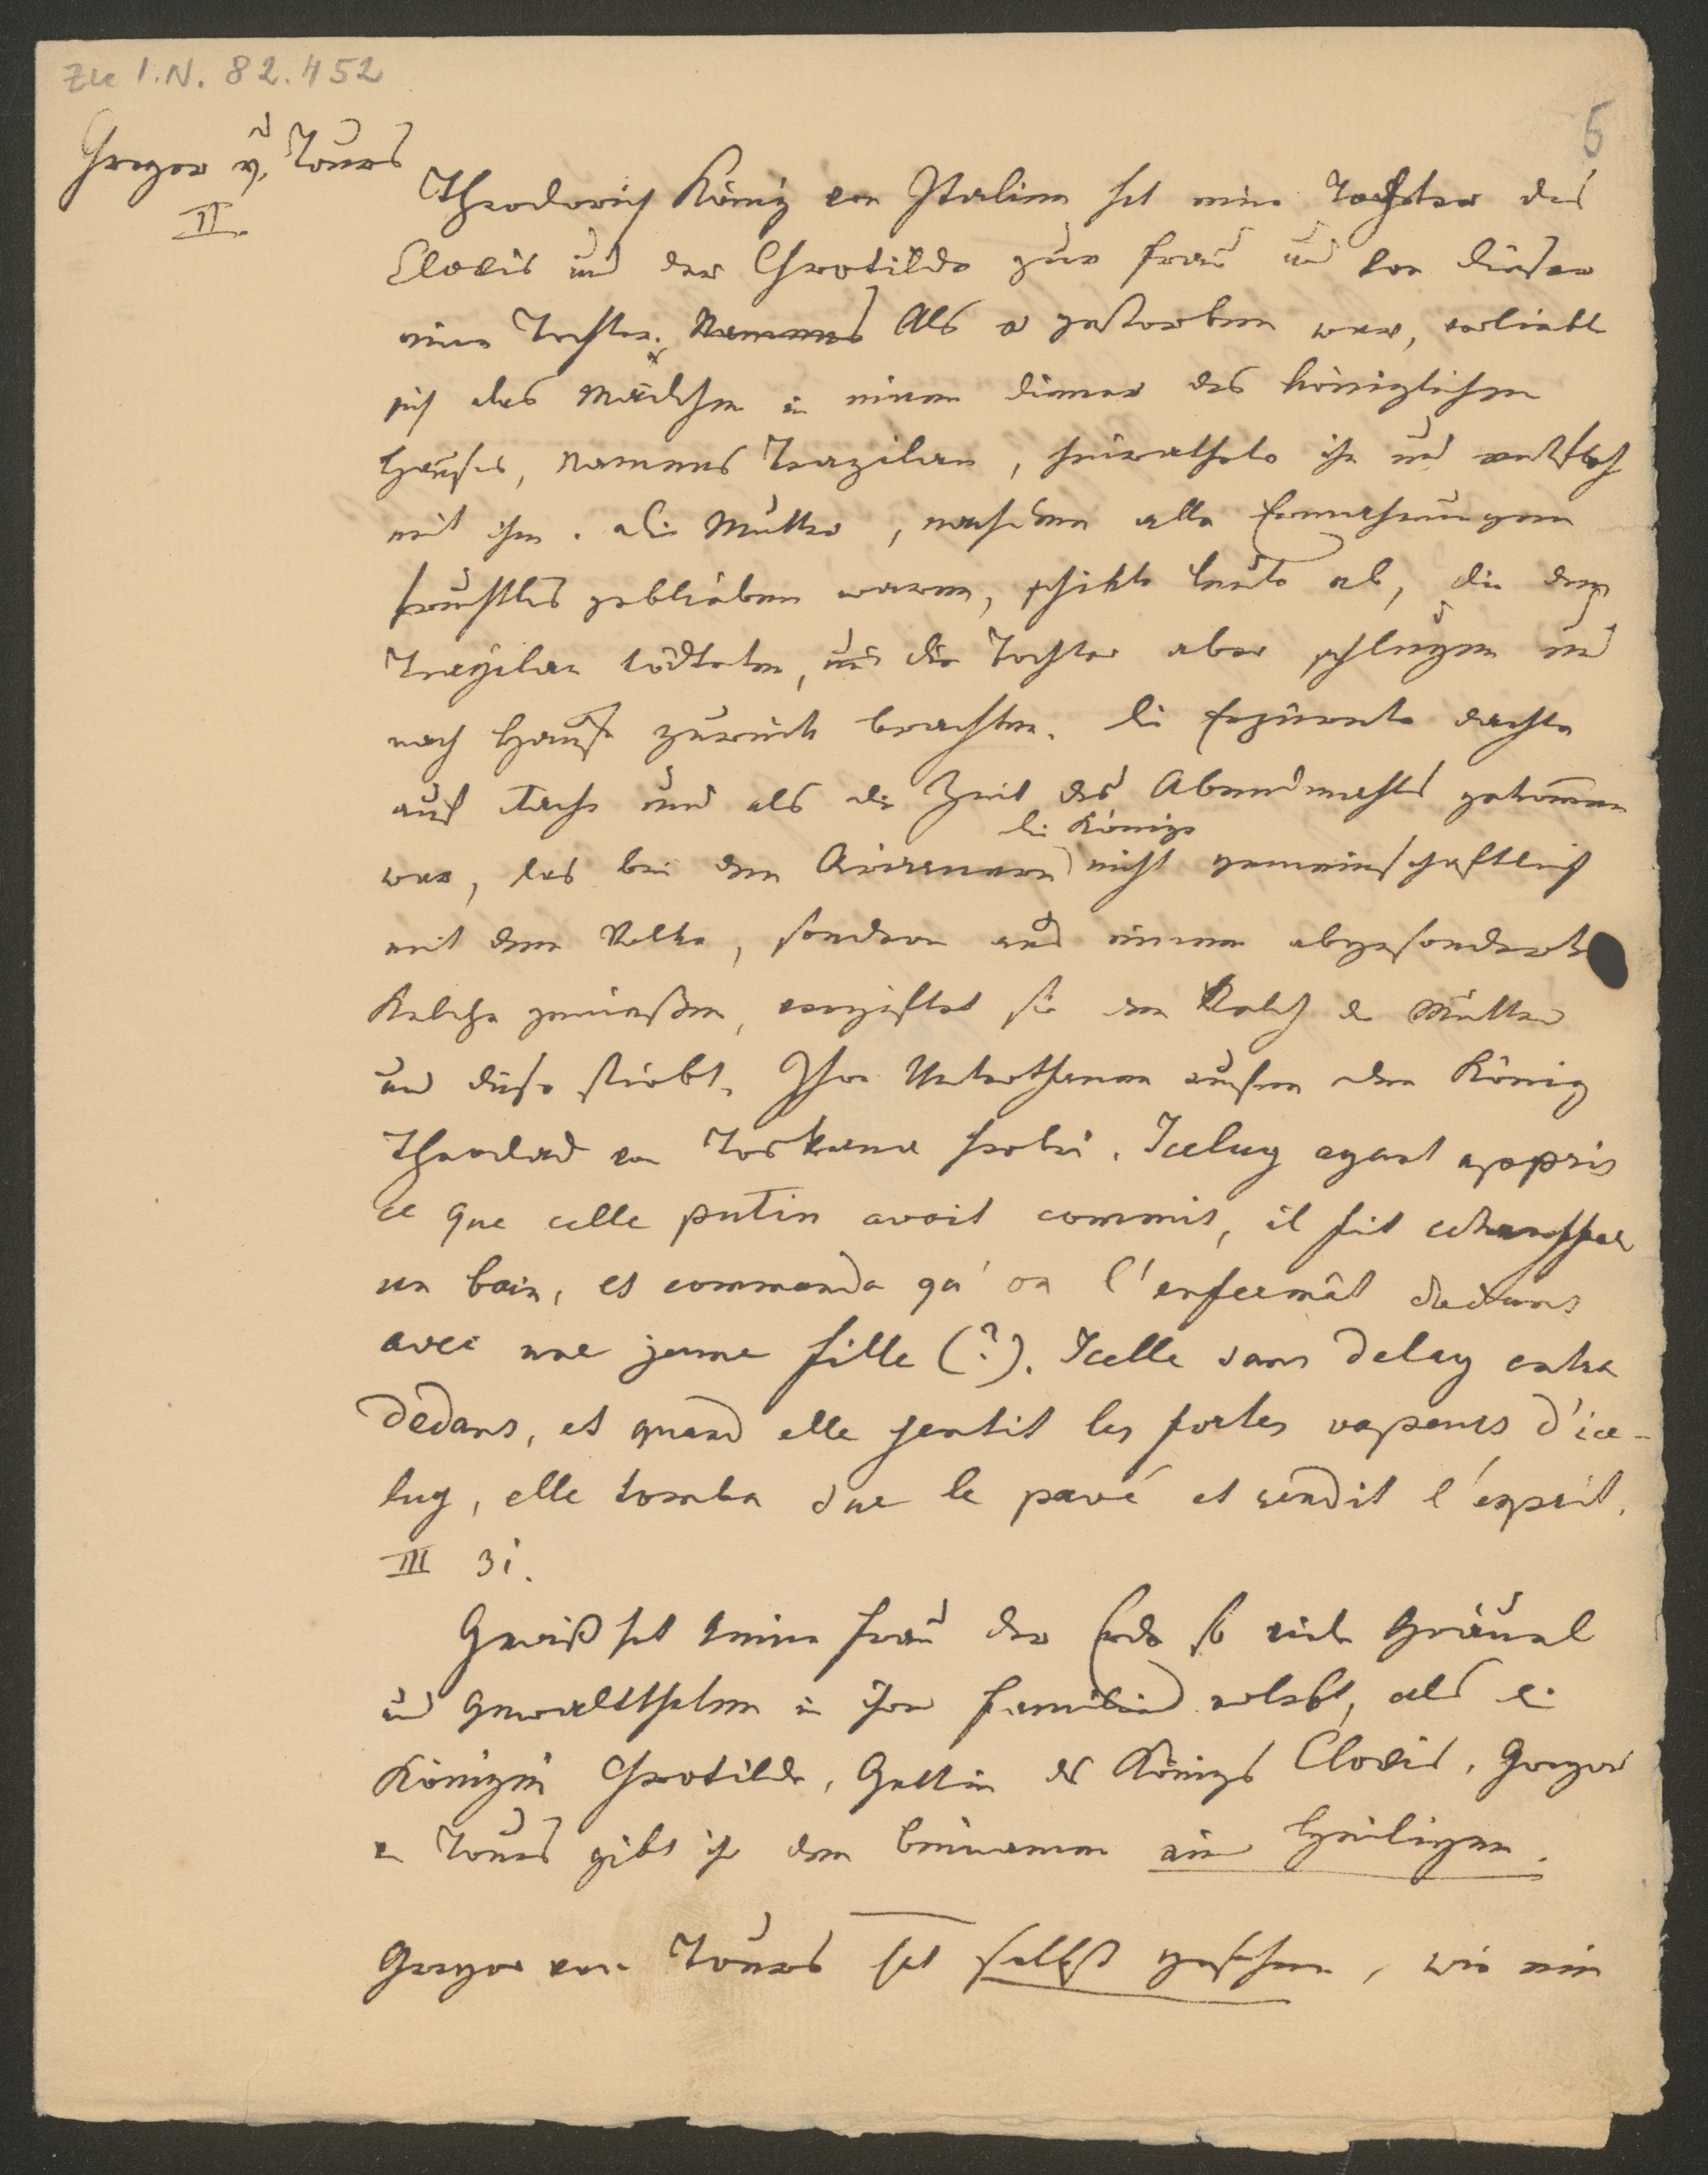 Zu I.N. 82.452
5
Gregor v. Tours
II.
Theodorich König von Italien hat eine Tochter des
Clovis und der Chrotilde zur Frau und von dieser
eine Tochter. Namens Als er gestorben war, verliebte
sich das Mädchen in einen Diener des königlichen
Hauses, Namens Trazilan, heirathete ihn und entfloh
mit ihm. Die Mutter, nachdem alle Ermahnungen
fruchtlos geblieben waren, schikte Leute ab, die den
Trazilan tödteten, und die Tochter aber schlugen und
nach Hause zurück brachten. Die Erzürnte dachte
auf Rache und als die Zeit des Abendmahls gekommen
die Könige
war, das bei den Arianern nicht gemeinschaftlich
mit dem Volke, sondern aus einem abgesonderten
Kelche genießen, vergiftet sie den Kelch der Mutter
und diese stirbt. Ihre Unterthanen rufen den König
Theodad von Toskana herbei. Iceluy ayant appris
ce que celle putin avoit commis, il fit echauffer
un bain, et commanda qu'on l'enfermât dedans
avec une jeune fille (?). Icelle sans delay entra
dedans, et quand elle sentit les fortes vapeurs d'ice-
luy, elle tomba sur le pavé et rendit l'esprit.
III 31.
Gewiß hat keine Frau der Erde so viele Gräuel
und Gewaltthaten in ihrer Familie erlebt, als die
Königin Chrotilde, Gattin des Königs Clovis. Gregor
von Tours gibt ihr den Beinamen einer Heiligen.
Gregor von Tours hat selbst gesehen, wie ein